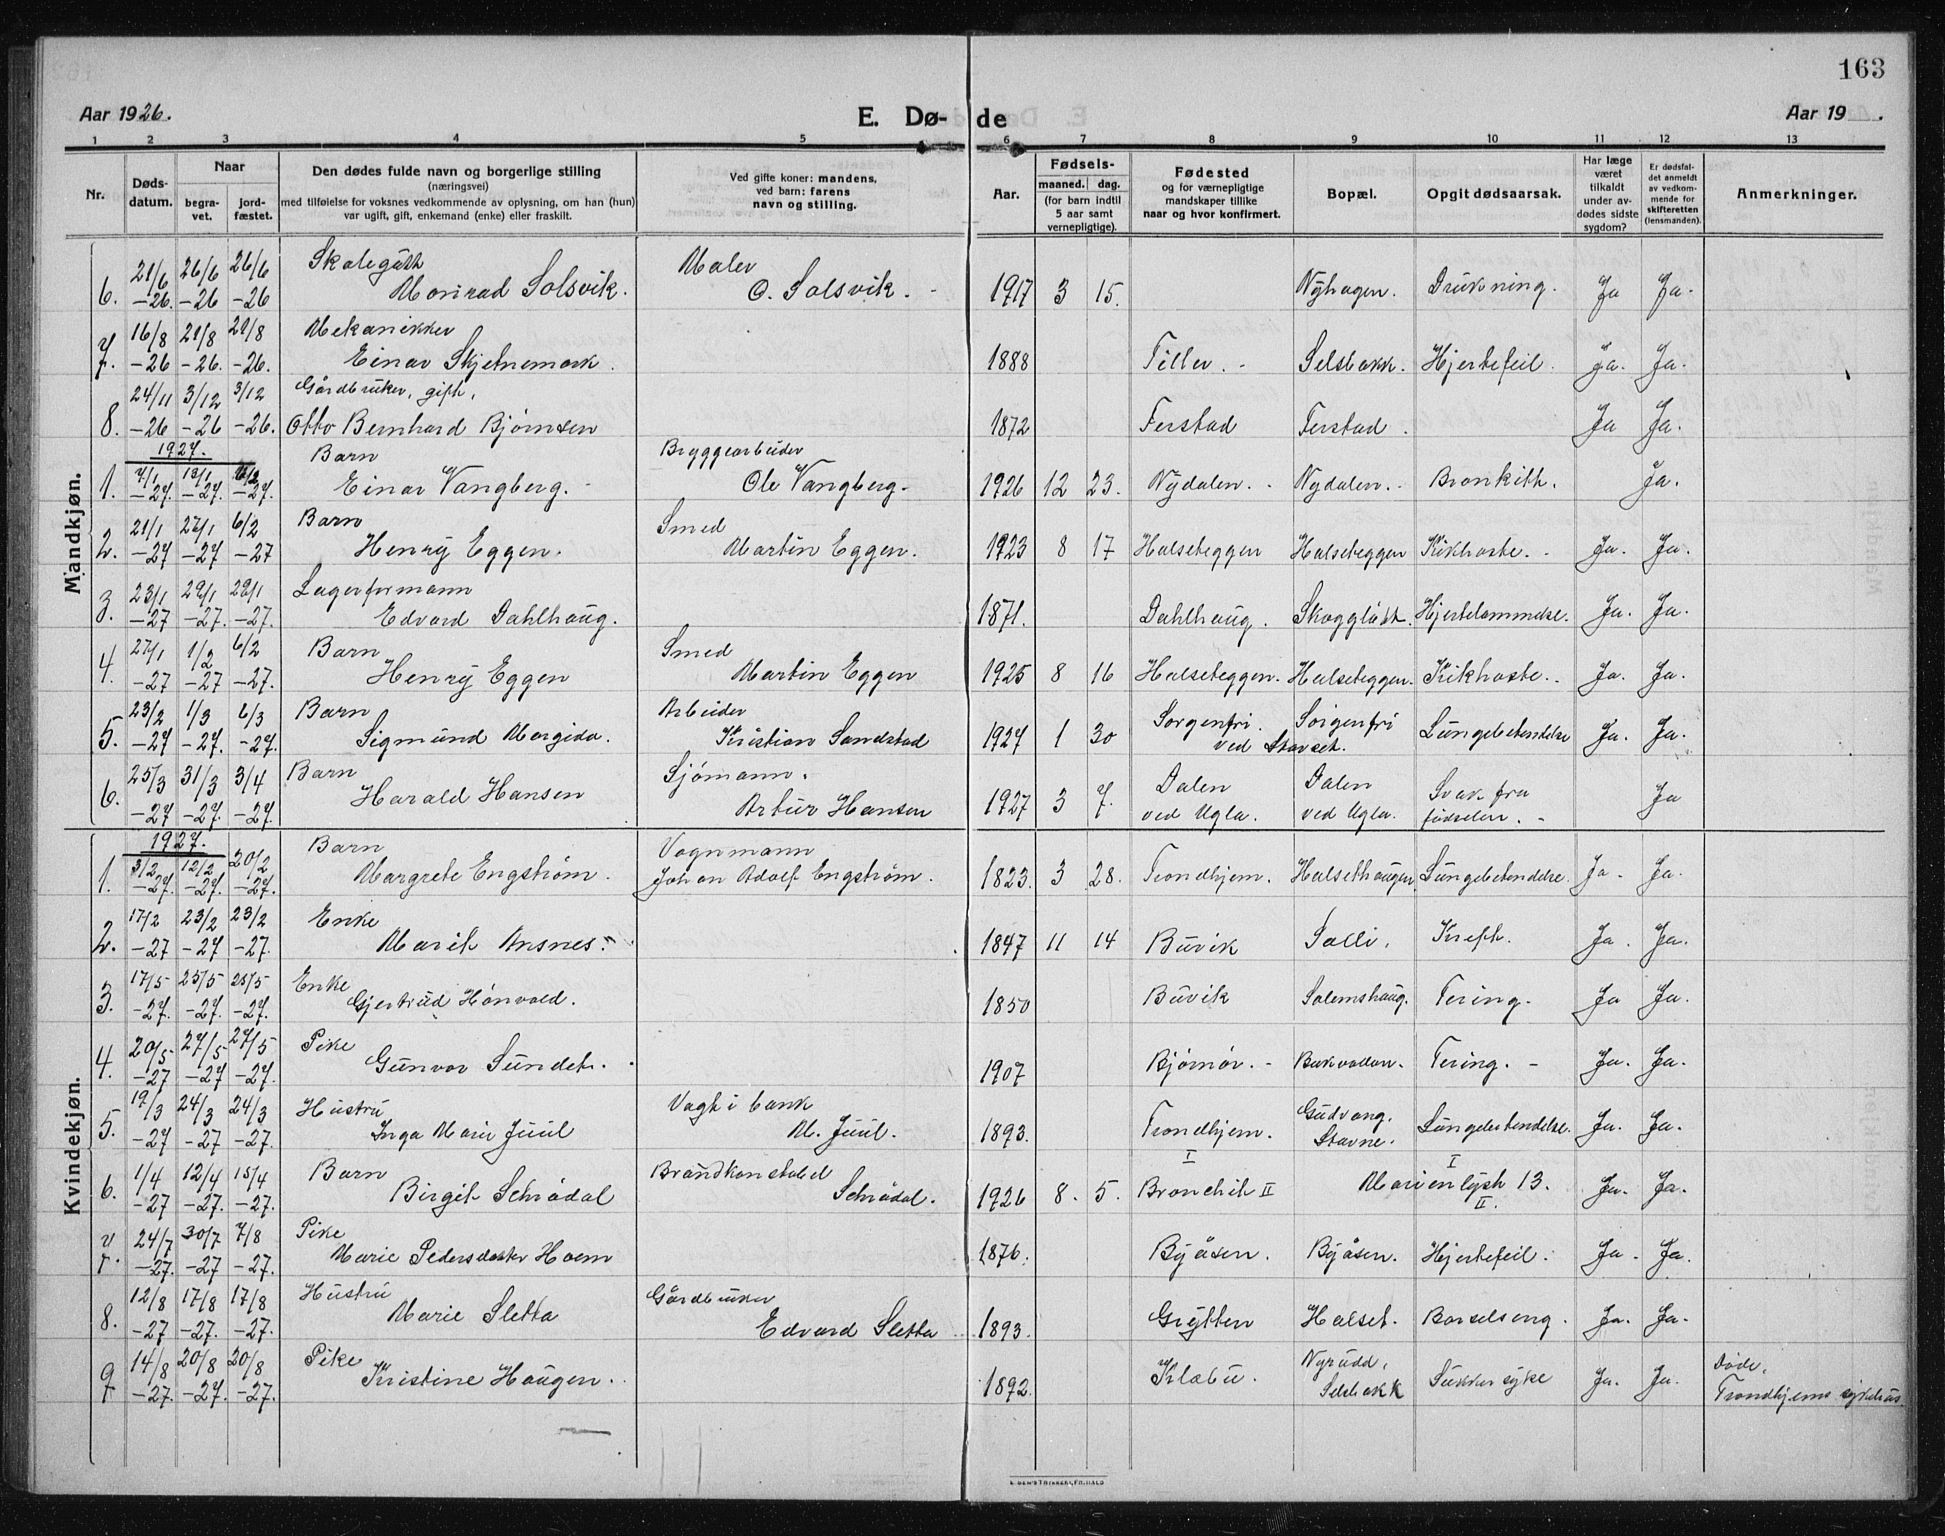 163
Aar 1926. E. Dø- de Aar 19 .
1 2 3 4 5 6 7 8 9 10 11 12 13
Nr. Døds-datum. Naar begra-vet. jord-fæstet. Den dødes fulde navn og borgerlige stilling (næringsvei) med tilføielse for voksnes vedkommende av oplysning, om han (hun) var ugift, gift, enkemand (enke) eller fraskilt. Ved gifte koner: mandens, ved barn: farens navn og stilling. Aar. Fødsels- maaned. dag. (for barn indtil 5 aar samt vernepligtige). Fødested og for værnepligtige mandskaper tillike naar og hvor konfirmert. Bopæl. Opgit dødsaarsak. Har læge været tilkaldt under av-dødes sidste sygdom? Er dødsfal-det anmeldt av vedkom-mende for skifteretten (lensmanden). Anmerkninger.
Mandkjøn.
6. 21/6 -26. 26/6 -26 26/6 -26 Skolegutt Monrad Solsvik. Maler O. Solsvik. 1917 3 15. Nyhagen. Drukning. Ja Ja.
7. 16/8 -26 21/8 -26. 21/8 -26. Mekanikker Einar Skjetnemark. 1888 Tiller. Selsbakk. Hjertefeil. Ja. Ja.
8. 24/11 -26 3/12 -26 3/12 -26. Gårdbruker, gift, Otto Bernhard Bjørnsen 1872 Ferstad Ferstad. Ja Ja.
1927.
1. 7/1 -27. 13/1 -27. -27. Barn Einar Vangberg. Bryggearbeider Ole Vangberg. 1926 12 23. Nydalen. Nydalen. Bronkitt. Ja.
2. 21/1 -27 27/1 -27 6/2 -27 Barn Henry Eggen. Smed Martin Eggen. 1923 8 17 Halseteggen Halseteggen Kikhoste. Ja. Ja.
3. 23/1 -27 29/1 -27. 29/1 -27. Lagerformann Edvard Dahlhaug. 1871. Dahlhaug. Skogglött. Hjertelammelse. Ja. Ja.
4. 27/1 -27 1/2 -27 6/2 -27. Barn Henry Eggen Smed Martin Eggen 1925 8 16 Halseteggen. Halseteggen. Kikhoste. Ja. Ja.
5. 23/2 -27 1/3 -27. 6/3 -27. Barn Sigmund Margido. Arbeider Kristian Sandstad 1927 1 30 Sorgenfri. Sorgenfri ved Stavset. Lungebetendelse Ja. Ja.
6. 25/3 -27 31/3 -27. 3/4 -27. Barn Harald Hansen Sjømann. Artur Hansen 1927 3 7. Dalen ved Ugla. Dalen ved Ugla. Svak fra fødselen. Ja
Kvindekjøn.
1927.
1. 3/2 -27. 12/2 -27. 20/2 -27. Barn Margrete Engstrøm. Vognmann Johan Adolf Engstrøm. 1823. 3 28. Trondhjem. Halsethaugen Lungebetendelse. Ja. Ja.
2. 17/2 -27 23/2 -27 23/2 -27. Enke Marit Ansnes. 1847 11 14 Buvik Solli. Kreft. Ja. Ja.
3. 17/5 -27. 25/5 -27. 25/5 -27. Enke Gjertrud Hønvold. 1850 Buvik Solemshaug. Tering. Ja Ja.
4. 20/5 -27 27/5 -27 27/5 -27. Pike Gunvor Sundet. 1907 Bjørnør. Bakvadan. Tering. Ja. Ja.
5. 19/3 -27 24/3 -27 24/3 -27. Hustru Inga Marie Juul Vagt i bank M. Juul. 1893. Trondhjem. Gudvang, Stavne. Lungebetendelse. Ja. Ja.
6. 1/4 -27 12/4 -27 15/4 -27. Barn Birgit Schrødal Brandkonstabel Schrødal. 1926 8. 5. I Bronchit II Marienlyst 13. I II. Ja. Ja.
7. 24/7 -27. 30/7 -27 7/8 -27. Pike Marie Pedersdatter Hoem 1876. Byåsen. Byåsen. Hjertefeil. Ja. Ja.
8. 12/8 -27 17/8 -27. 17/8 -27. Hustru Marie Sletta Gårdbruker Edvard Sletta 1893. Grytten Halset. Barselseng. Ja. Ja.
9. 14/8 -27. 20/8 -27. 20/8 -27. Pike Kristine Haugen. 1892. Klæbu. Nyrudd, Selsbakk Sukkersyke Ja. Ja. Døde, Trondhjems sykehus